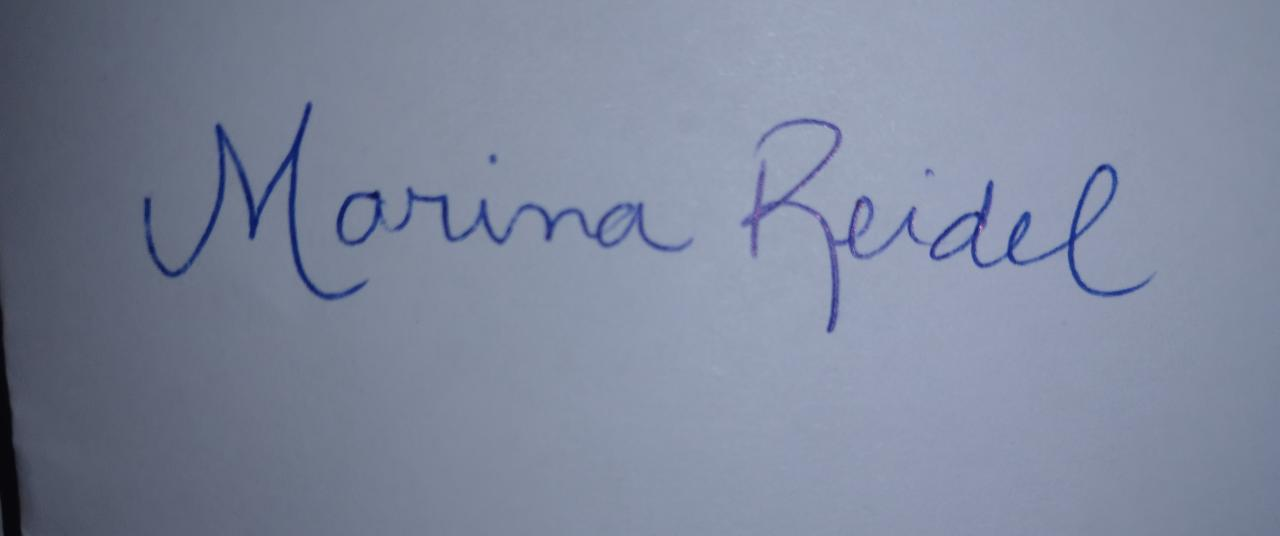 Marina Reidel